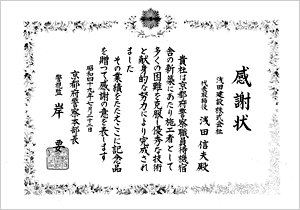 感謝状
浅田建設株式会社
代表取締役 浅田信夫殿
貴社は京都府警察職員待機宿
舎の新築にあたり施工者として
多くの困難を克服し優秀な技術
と献身的な努力により完成され
ました
その業績をたたえここに記念品
を贈って感謝の意を表します
昭和四十九年七月三十一日
京都府警察本部長
警視監 岸 要